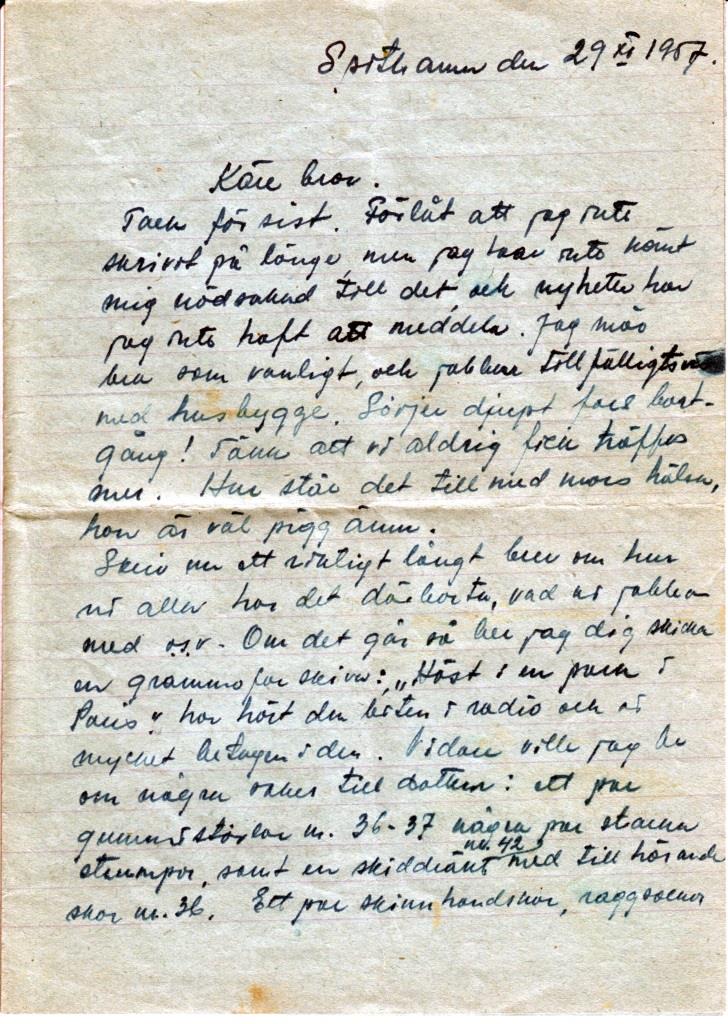 Spithamn den 29 XI 1957.
Käre bror.
Tack för sist. Förlåt att jag inte
skrivit på länge, men jag har inte känt
mig nödsakad till det, och nyheter har
jag inte haft att meddela. Jag mår
bra som vanligt, och jobbar tillfälligtvis
med husbygge. Sörjer djupt fars bort-
gång! Tänk att vi aldrig fick träffas
mer. Hur står det till med mors hälsa,
hon är väl pigg ännu.
Skriv nu ett riktigt långt brev om hur
ni alla har det därborta, vad ni jobbar
med o.s.v. Om det går så ber jag dig skicka
en grammofonskiva: „Höst i en park i
Paris" har hört den biten i radio och är
mycket betagen i den. Vidare ville jag be
om några saker till dottern: ett par
gummistövlar nr. 36-37 några par starka
strumpor, samt en skiddräkt nr. 42 med tillhörande
skor nr. 36. Ett par skinnhandskar, raggsockor